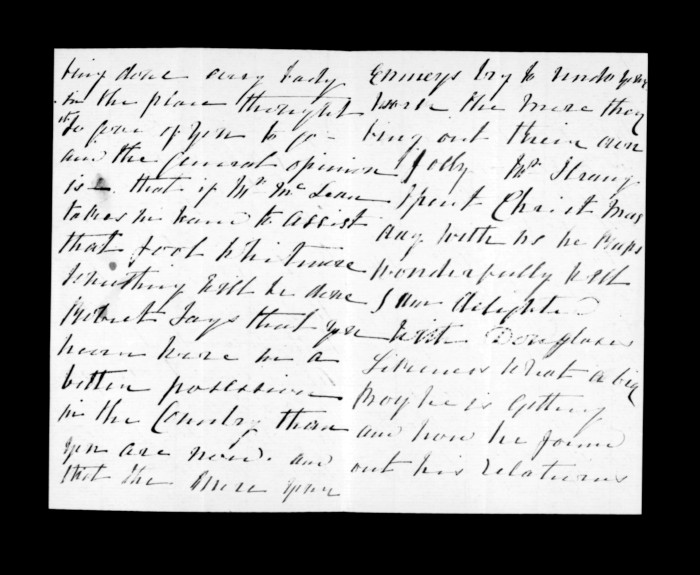 being done every body
in the place thought
to give of you to go -
and the general opinion
is - that if Mr McLean
takes in hand to assist
that fool Whitmore
something will be done
Robert Says that you
never were in a
better possession
in the Country than
you are now. and
that the More your
Enmeys try to undo your
work the more they
bring out their own
folly Mr Strang
Spent Christ Mas
day with us he keeps
wonderfully well
I am delighted
with Douglases
Likeness what a big
Boy he is getting
and how he found
out his relations